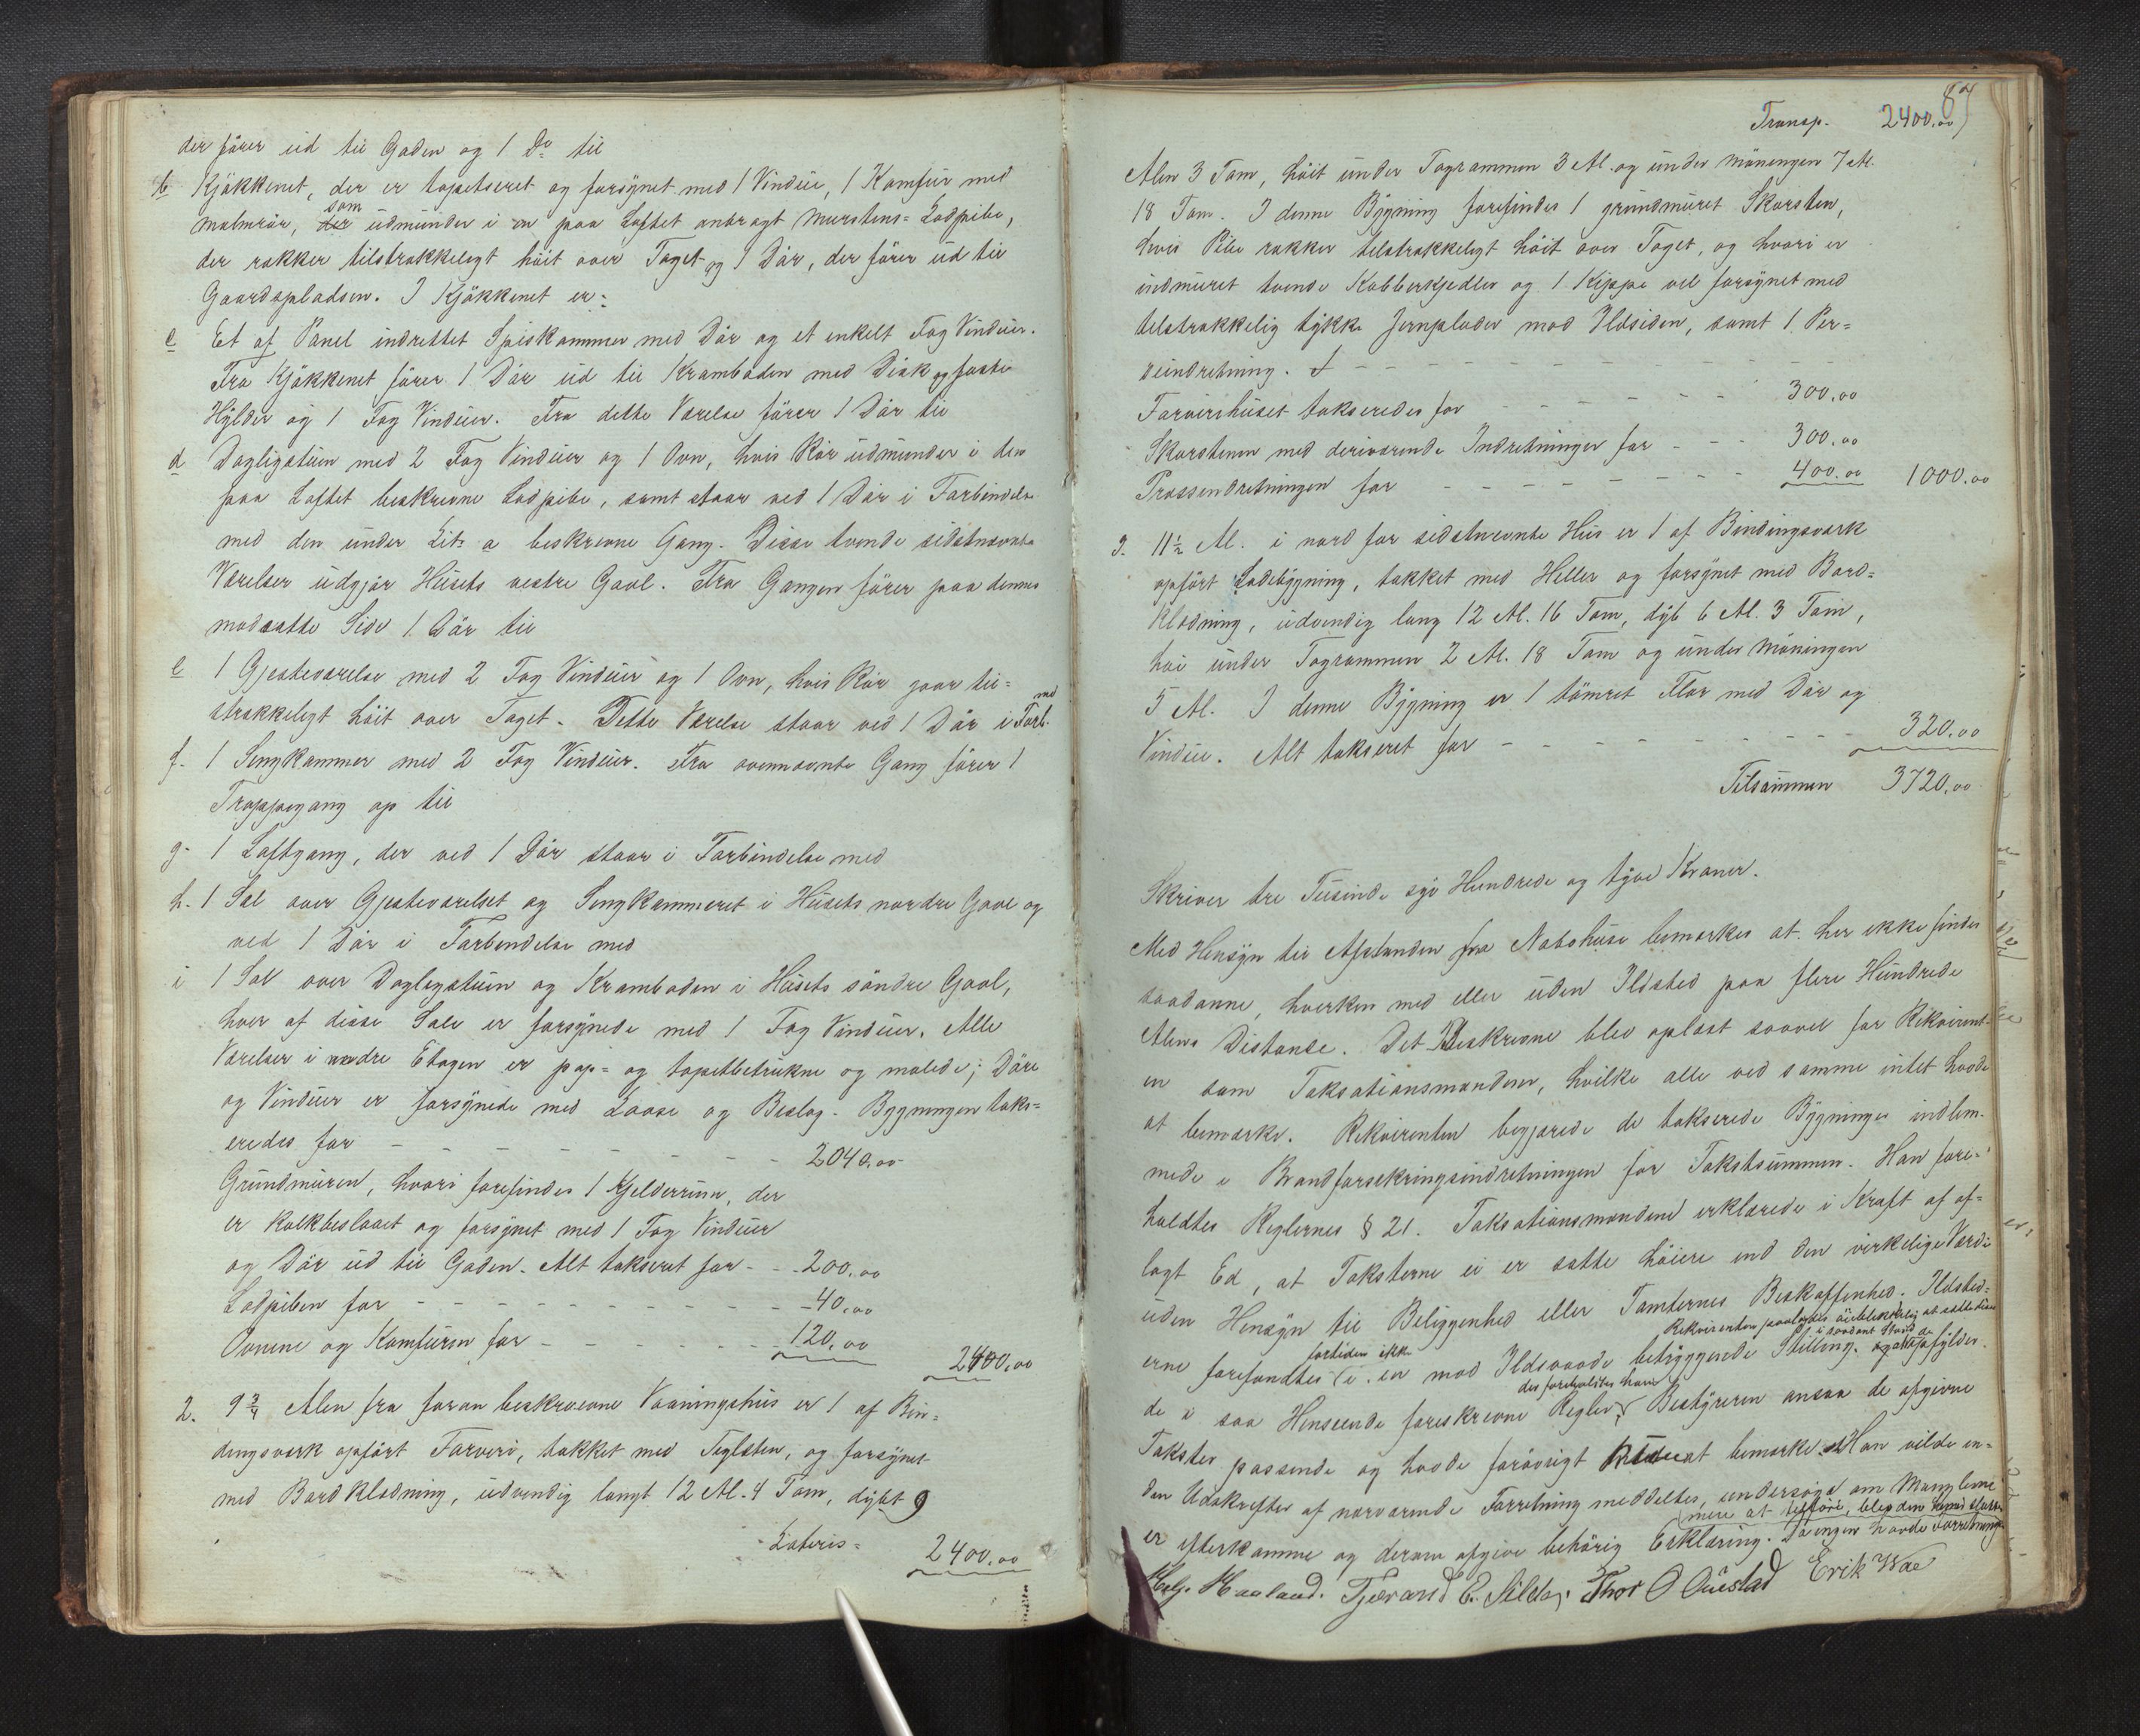 der fører ud til Gaden og 1 Do til
b Kjøkkenet, der er tapetseret og forsynet med 1 Vindue, 1 Komfur med
malmrør, der som udmunder i en paa Loftet anbragt Murstens-Lodpibe,
der rækker tilstrækkeligt høit over Taget og 1 Dør, der fører ud til
Gaardspladsen. I Kjøkkenet er:
c Et af Panel indrettet Spiskammer med Dør og et enkelt Fag Vinduer.
Fra Kjøkkenet fører 1 Dør ud til Kramboden med Disk og faste
Hylder og 1 Fag Vinduer. Fra dette Værelse fører 1 Dør til
d Dagligstuen med 2 Fag Vinduer og 1 Ovn, hvis Rør udmunder i den
paa Loftet beskrevne Lodpibe, samt staar ved 1 Dør i Forbindelse
med den under Litr a beskrevne Gang. Disse tvende sidstnævnte
Værelser udgjør Husets vestre Gavl. Fra Gangen fører paa dennes
modsatte Side 1 Dør til
e 1 Gjesteværelse med 2 Fag Vinduer og 1 Ovn, hvis Rør gaar til-
strækkeligt høit over Taget. Dette Værelse staar ved 1 Dør i Forb. med
f. 1 Sengkammer med 2 Fag Vinduer. Fra ovennævnte Gang fører 1
Trappegang op til
g. 1 Loftgang, der ved 1 Dør staar i Forbindelse med
h. 1 Sal over Gjesteværelset og Sengkammeret i Husets nordre Gavl og
ved 1 Dør i Forbindelse med
i 1 Sal over Dagligstuen og Kramboden i Husets søndre Gavl,
hver af disse Sale er forsynede med 1 Fag Vinduer. Alle
Værelser i nedre Etagen er pap- og tapetbetrukne og malede; Døre
og Vinduer er forsynede med Laase og Beslag. Bygningen taks-
eredes for - - - - - 2040,00
Grundmuren, hvori forefindes 1 Kjelderrum, der
er kalkbeslaaet og forsynet med 1 Fag Vinduer
og Dør ud til Gaden. Alt takseret for - - 200,00
Lodpiben for - - - - - 40,00
Ovnene og Komfuren for - - - - 120,00 2400,00
2. 9 3/4 Alen fra foran beskrevne Vaaningshus er 1 af Bin-
dingsværk opført Farveri, tækket med Teglsten, og forsynet
med Bordklædning, udvendig langt 12 Al. 4 Tom, dybt 9
Lateris - 2400,00
87
Transp. 2400,00
Alen 3 Tom, høit under Tagrammen 3 Al. og under Møningen 7 Al.
18 Tom. I denne Bygning forefindes 1 grundmuret Skorsten,
hvis Pibe rækker tilstrækkeligt høit over Taget, og hvori er
indmuret tvende Kobberkjedler og 1 Kyppe vel forsynet med
tilstrækkelig tykke Jernplader mod Ildsiden, samt 1 Per-
seindretning. - - - - -
Farverihuset takseredes for - - - - 300,00
Skorstenen med deriværende Indretninger for - - 300,00
Presseindretningen for - - - - - 400,00 1000,00
3. 11 1/2 Al. i nord for sidstnævnte Hus er 1 af Bindingsværk
opført Ladebygning, tækket med Heller og forsynet med Bord-
klædning, udvendig lang 12 Al. 16 Tom, dyb 6 Al. 3 Tom,
høi under Tagrammen 2 Al. 18 Tom og under Møningen
5 Al. I denne Bygning er 1 tømret Flor med Dør og
Vindue. Alt takseret for - - - - - 320,00
Tilsammen 3720,00
Skriver tre Tusinde syv Hundrede og tyve Kroner.
Med Hensyn til Afstanden fra Nabohuse bemærkes at her ikke findes
saadanne, hverken med eller uden Ildsted paa flere Hundrede
Alens Distanse. Det Beskrevne blev oplæst saavel for Rekvirent-
en som Taksationsmændene, hvilke alle ved samme intet havde
at bemærke. Rekvirenten begjærede de takserede Bygninger indlem-
mede i Brandforsikringsindretningen for Takstsummen. Han fore-
holdtes Reglernes § 21. Taksationsmændene erklærede i Kraft af af-
lagt Ed, at Taksterne ei er satte høiere end den virkelige Værdi
uden Hensyn til Beliggenhed eller Tomternes Beskaffenhed. Ildsted-
Rekvirenten paalagdes øieblikkelig at sætte disse
i saadant Stand
erne forefandtes fortiden ikke i en mod Ildsvaade betryggende Stilling. og at opfylder
de i saa Henseende foreskrevne Regler, der foreholdtes ham. Bestyreren ansaa de afgivne
Takster passende og havde forøvrigt Intet at bemærke. Han vilde in-
den Udskrifter af nærværende Forretning meddeltes, undersøge om Manglerne
er efterkomme og derom afgive behørig Erklæring. Da ingen havde mere at tilføre, blev den Forretning sluttet
Helje Haaland. Tjerand E. Silde. Thor O Oüestad Erik Wae